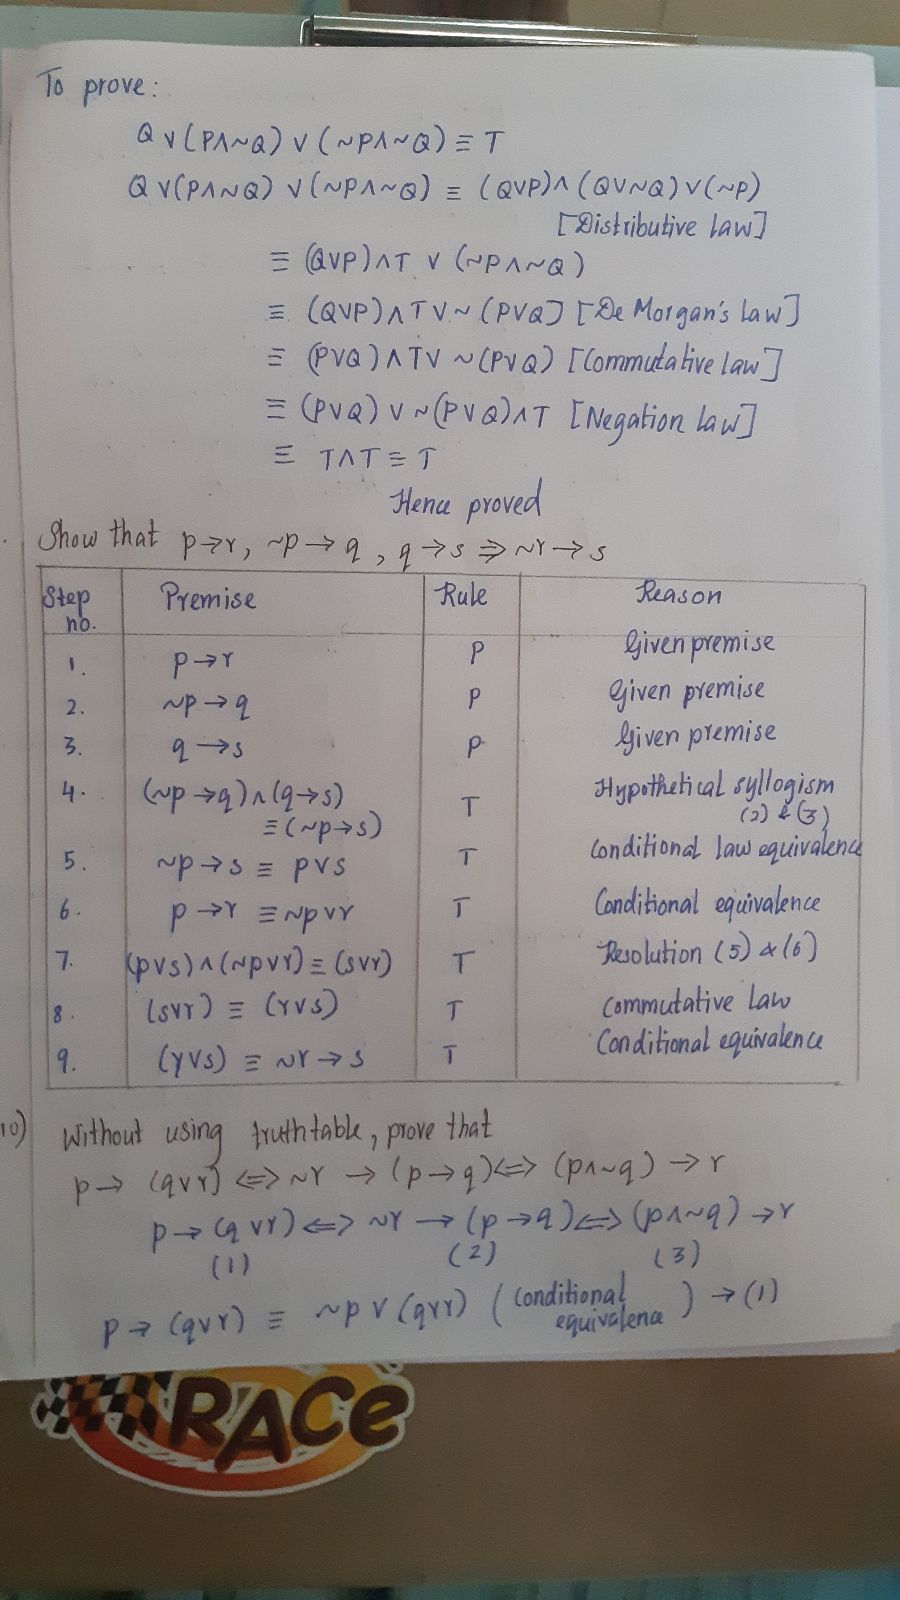 To prove:
Q ∨ (P∧~Q) ∨ (~P∧~Q) ≡ T
Q ∨(P∧~Q) ∨(~P∧~Q) ≡ (Q∨P)∧ (Q∨~Q) ∨(~P)
[Distributive law]
≡ (Q∨P)∧T ∨ (~P∧~Q)
≡ (Q∨P)∧T∨~(P∨Q] [De Morgan's Law]
≡ (P∨Q)∧T∨ ~(P∨Q) [Commutative law]
≡ (P∨Q) ∨ ~(P∨Q)∧T [Negation law]
≡ T∧T ≡ T
Hence proved
Show that p→r, ~p→q, q→s ⇒ ~r→s
Step no. Premise Rule Reason
1. p→r P Given premise
2. ~p→q P Given premise
3. q→s P Given premise
4. (~p→q)∧(q→s) T Hypothetical syllogism
≡(~p→s) (2) & (3)
5. ~p→s ≡ p∨s T Conditional law equivalence
6. p→r ≡~p∨r T Conditional equivalence
7. (p∨s)∧(~p∨r)≡(s∨r) T Resolution (5) & (6)
8. (s∨r) ≡ (r∨s) T Commutative law
9. (r∨s) ≡ ~r→s T Conditional equivalence
10) Without using truthtable, prove that
p→ (q∨r) ⇔ ~r → (p→q) ⇔ (p∧~q) → r
p→(q∨r) ⇔ ~r → (p→q) ⇔ (p∧~q) → r
(1) (2) (3)
p→ (q∨r) ≡ ~p ∨ (q∨r) (conditional equivalence) → (1)
RACe